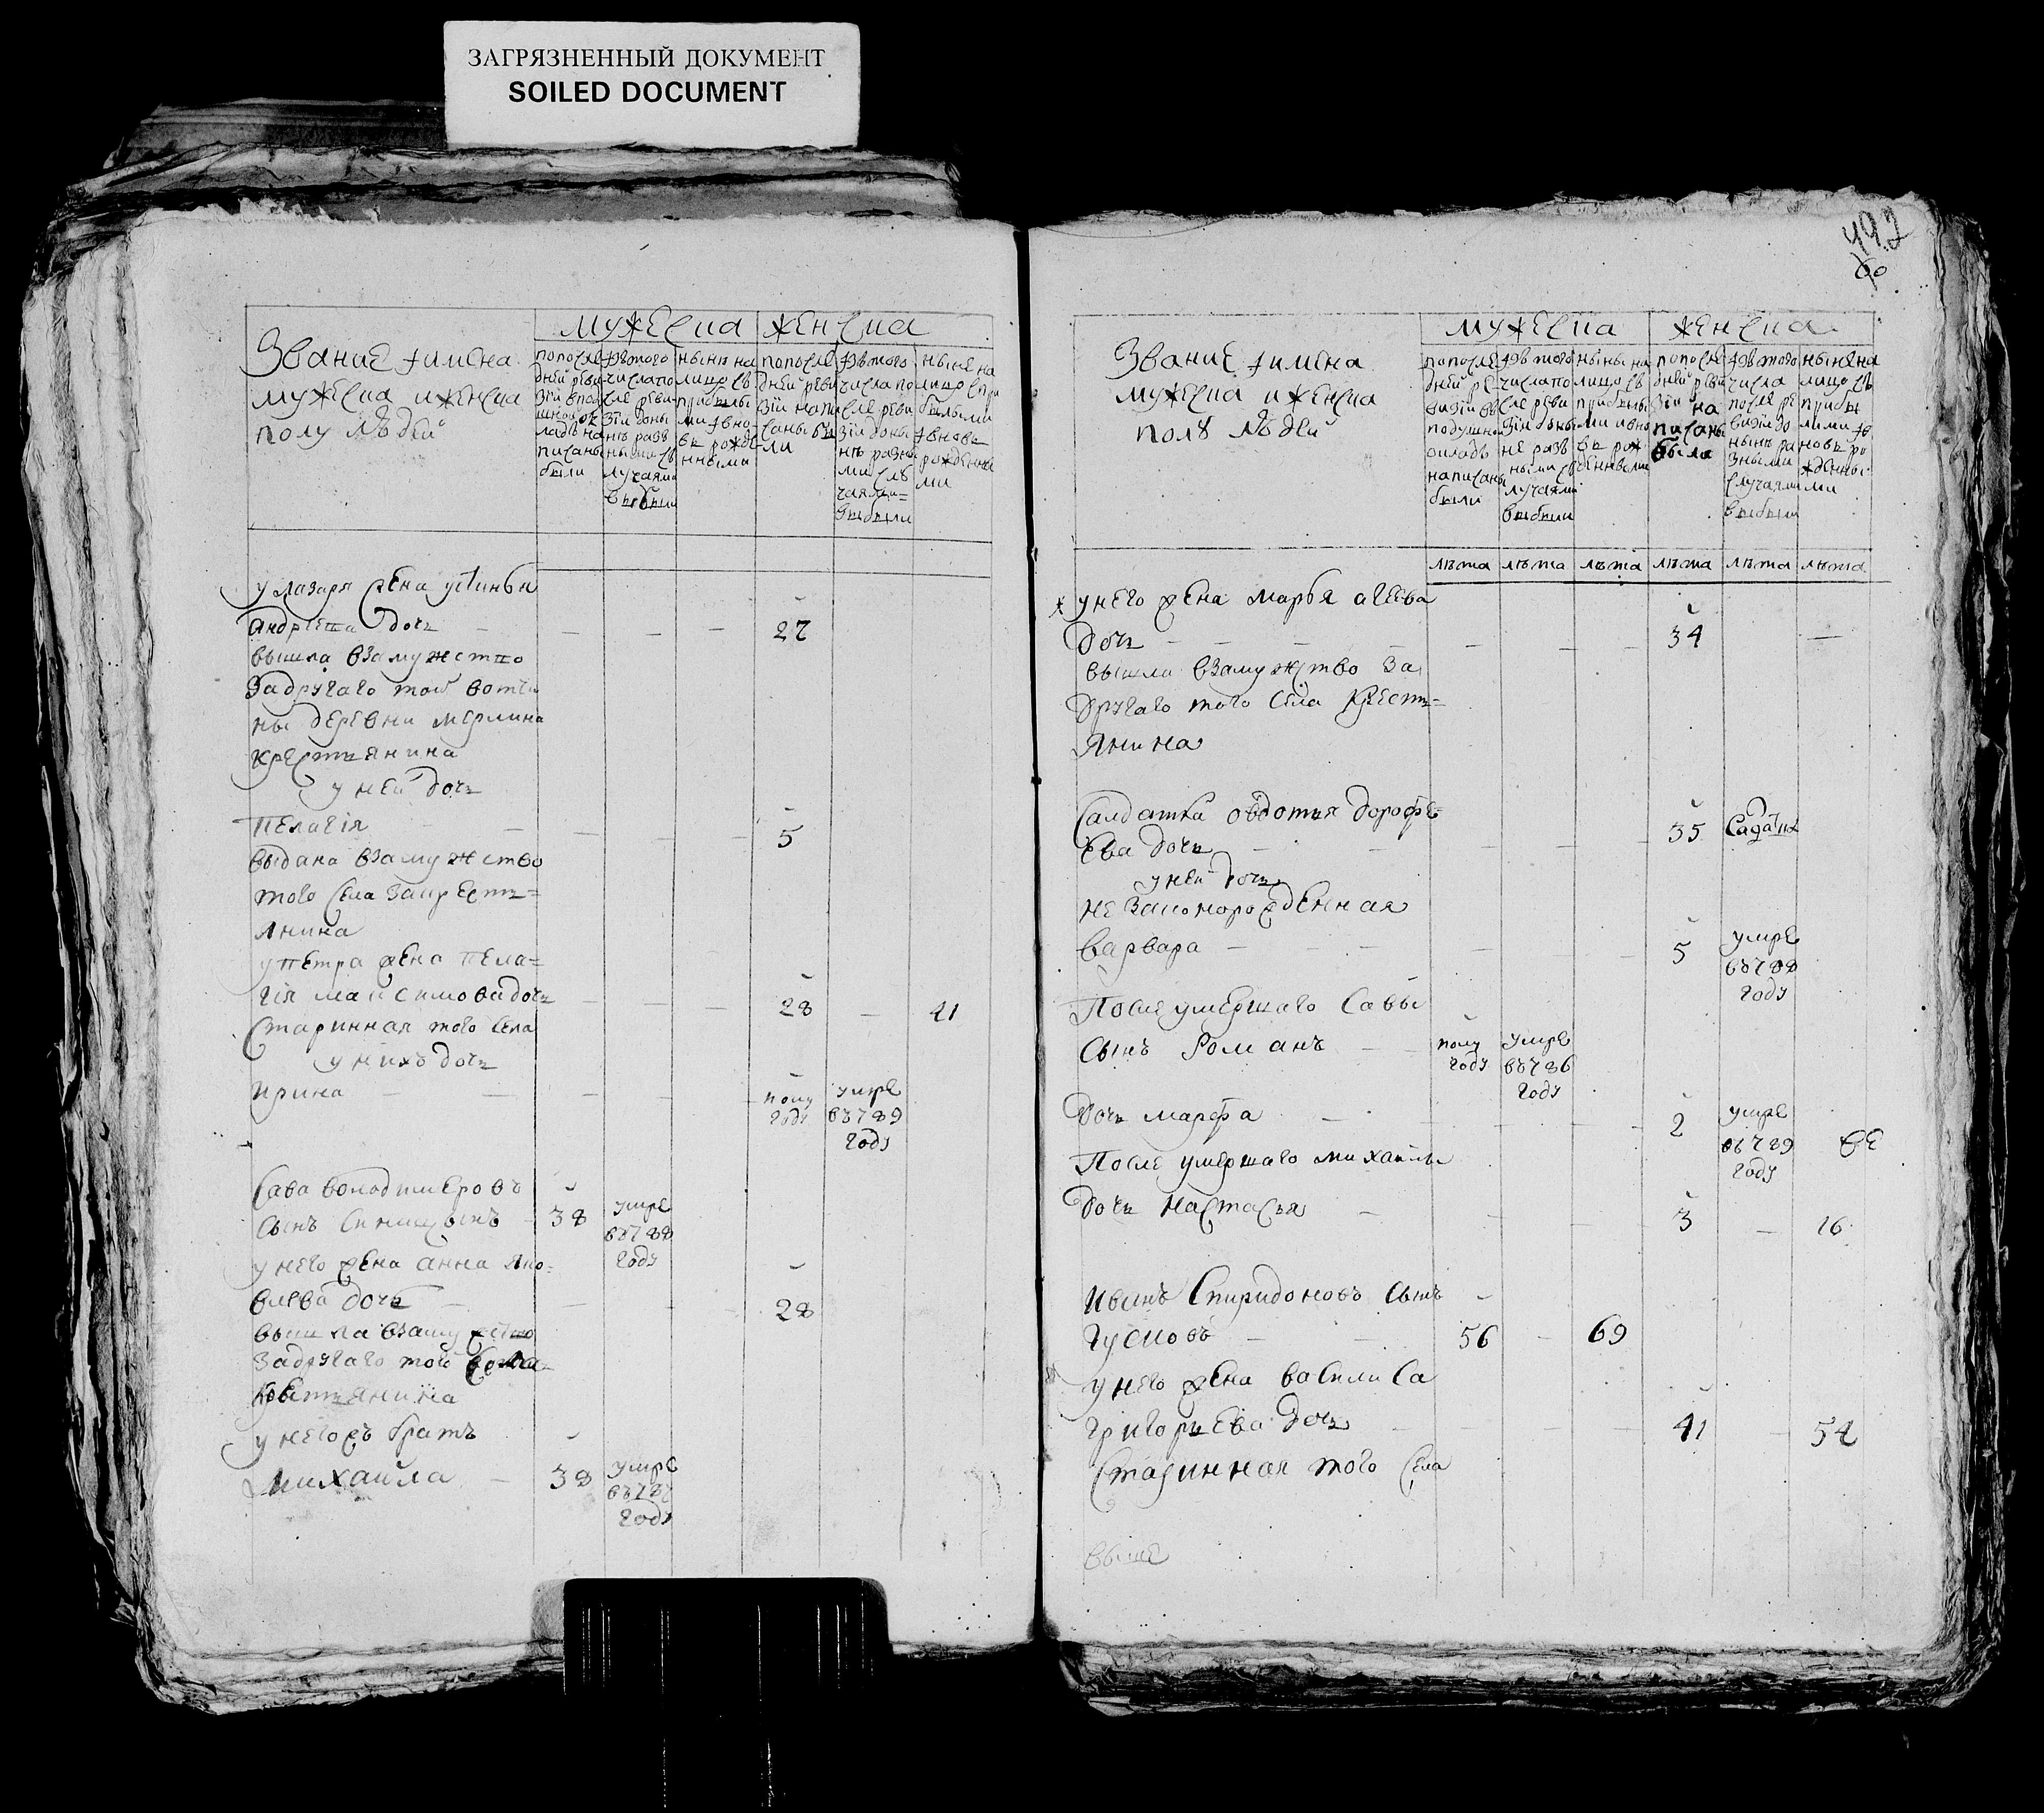 ЗАГРЯЗНЕННЫЙ ДОКУМЕНТ
SOILED DOCUMENT
492
60
Звание имена
мужеска и женска
полу людей
мужеска женска
попосле
дней реви
зіи впо
душной ок
ладъ на
писаны
были
извтого
числапо
сле реви
зіи доны
нѣ разв
ными сл
лучаями
выбыли
нынѣ на
лицо съ
прибылы
ми ивно
вь рожде
нными
попосле
дней реви
зіи напи
саны бы
ли
извтого
числа по
сле реви
зіи доны
нѣ разны
ми слѣ
чаями
выбыли
ныне на
лицо спри
былыми
ивновь
рожденны
ми
у лазаря жена устинья
андреева дочь 27
вышла взамужство
задругаго той вотчи
ны деревни мерлина
крестьянина
у ней дочь
пелагія 5
выдана взамужство
того села закресть=
янина
у петра жена пела=
гія максимова дочь 28 41
старинная того села
у нихъ дочь
ирина полу году умре въ789 году
Сава володимеровъ
сынъ синицынъ 38 умре въ788 году
у него жена анна яко=
влева дочь 28
вышла взамужство
задругаго того села
крестьянина
у негожъ братъ
михаила 38 умре въ787 году
Звание имена
мужеска и женска
полѣ людей
мужеска женска
попосле
дней ре
визіи въ
подушно
окладъ
написаны
были
извтого
числапо
сле реви
зіи доны
не разв
ными с
лучаями
выбыли
ныны на
лицо съ
прибылы
ми ивно
вь рож
денными
попосле
дней реви
зіи на
писаны
была
извтого
числа
после ре
визіи до
нынѣ ра
зными
случаями
выбыли
ныне на
лицо съ
прибы
лыми ив
новь ро
жденны
ми
лѣта лѣта лѣта лѣта лѣта лѣта
у него жена марья агеева
дочь 34
вышла взамужство за
другаго того села крестъ=
янина
Салдатка овдотья дорофе=
ева дочь 35
у ней дочь
не законорожденная
варвара 5 умре въ788 году
После умершаго савы
сынъ романъ полу году умре въ786 году
Дочь марфа 2 умре въ789 году
После умершаго михаилы
дочь настасья 3 16
Иванъ Спиридоновъ сынъ
гусковъ 56 69
у него жена василиса
григорьева дочь 41 54
старинная того села
выше